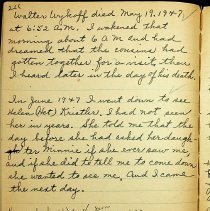 Walter Wykoff died May 19, 1947,
at 6:52 A.M. I wakened that
morning about 6 A.M and had
dreamed that the cousins had
gotten together for a visit, then
I heard later in the day of his death.
In June 1947 I went down to see
Helen (Het) Kistler, I had not seen
her in years. She told me that the
day before she had asked her daugh-
ter Minnie if she ever saw me,
and if she did to tell me to come down
she wanted to see me, And I came
the next day.